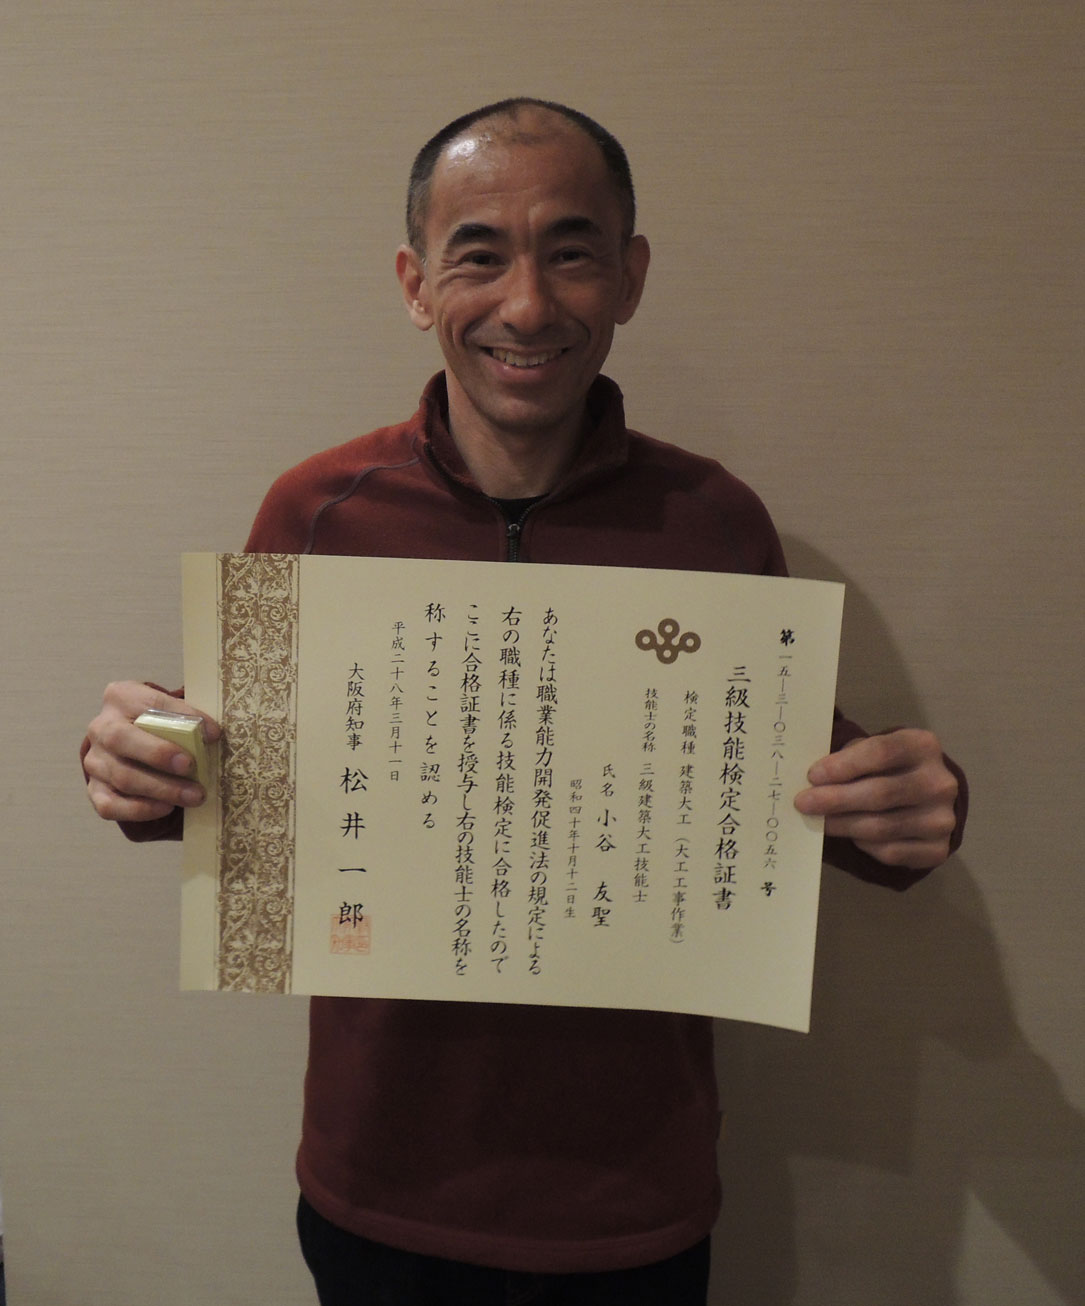 第一五―三―〇三八―二七―〇〇五六号
三級技能検定合格証書
検定職種 建築大工（大工工事作業）
技能士の名称 三級建築大工技能士
氏名 小谷 友聖
昭和四十年十月十二日生
あなたは職業能力開発促進法の規定による
右の職種に係る技能検定に合格したので
ここに合格証書を授与し右の技能士の名称を
称することを認める
平成二十八年三月十一日
大阪府知事 松井一郎